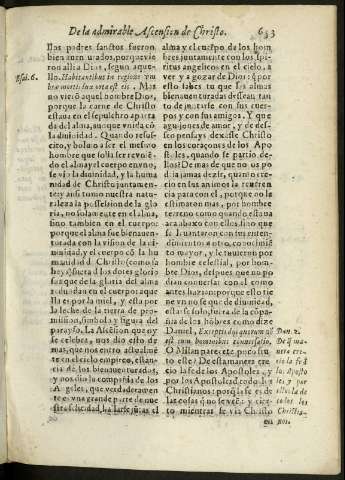 De la admirable Ascension de Christo. 643
llos padres sanctos fueron
bien auenturados, porque vie
ron alli a Dios, segun aque-
llo. Habitantibus in regione vm
Esai. 6.
no viera aquel nombre Dios,
porque la carne de Christo
estaua en el sepulchro aparta
da del alma, aunque vnida cõ
la diuinidad. Quando resus-
cito, y boluio a ser el mesmo
hombre que solia ser vnien-
do el alma y el cuerpo en vno,
se vio la diuinidad, y la huma
nidad de Christo juntamen-
te y assi tomo nuestra natu-
raleza la possession de la glo
ria, no solamente en el alma
sino tambien en el cuerpo:
porque el alma fue bienauen-
turada con la vision de la di-
uinidad, y el cuerpo cõ la hu
manidad de Christo (como se
haya) seran los dotes gloria
que de la gloria del alma
a redundan en el cuerpo: aque
lla es por miel, y esta por
la leche de la tierra de pro-
mission, simbolo y figura del
parayso. La Ascension que oy
se celebra, nos dio esto de
mas, que nos entro actualmen
te en el cielo empireo, estan-
cia de los bienauenturados,
y nos dio la compañia de los
Angeles, que verdaderamen
te es vna grande parte de nue
stra felicidad, hallarse juntas el
alma y el cuerpo de los hom
bres juntamente con los spi-
ritus angelicos en el cielo, a
ver y a gozar de Dios: que por
esto sabes tu que las almas
bienauenturadas dessean tan-
to de juntarse con sus cuer-
pos y con sus amigos. Y que
aguijones de amor, y de des-
seo pensays dexasse Christo
en los coraçones de los Apos
toles, quando se partio de-
llos? De mas de que no us po
dia jamas dezir, quanto cre-
cio en sus animos la reueren
cia para con el, porque no le
estimaron mas, por hombre
terreno como quando estaua
aca abaxo con ellos, sino que
se leuantaron con sus enten-
dimientos a otro, conocimiẽ
to mayor, y le tuuieron por
hombre celestial, por hom-
bre Dios, despues que no po
dian conuersar con el como
antes hazian: porque esto tie
ne vn no se que de diuinidad,
estarse solo, fuera de la compa
ñia de los hõbres como dize
Daniel, Exceptis dijs quorum nõ
est cum hominibus conuersatio.
O Milan pareceste poco fru
to este? Desta manera cre-
cio la fe de los Apostoles, y
por los Apostoles la de todos los
Christianos: porque la fe es de
las cosas que no se ven: y cier
to mientras se via Christo
Dan. 2.
De que ma
nera cre-
cio la fe d
los Aposto
les y por
ellos la de
todos los
Christia-